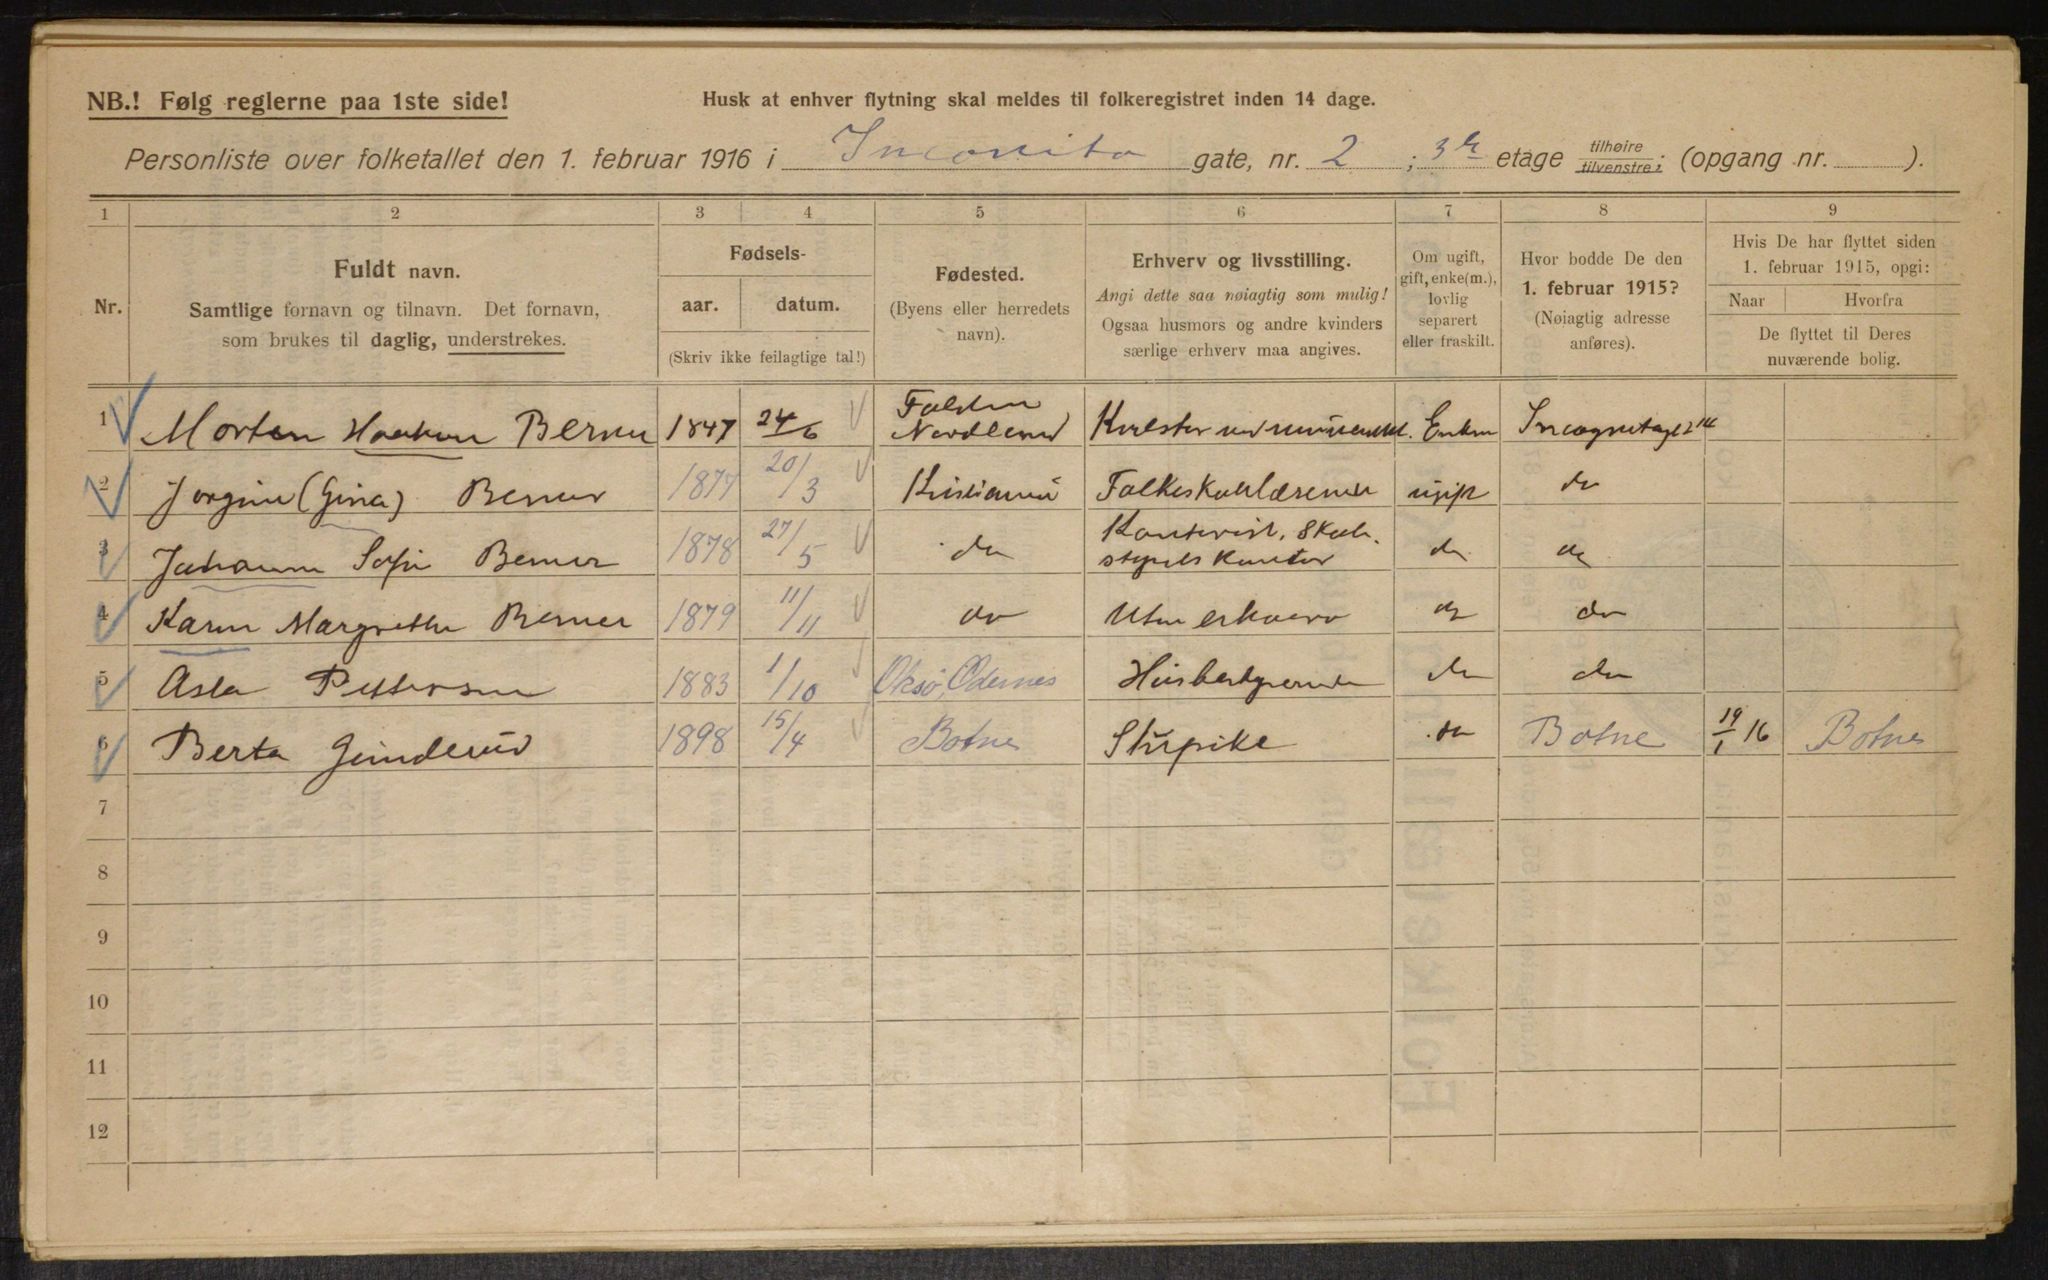 NB.! Følg reglerne paa 1ste side!
Husk at enhver flytning skal meldes til folkeregistret inden 14 dage.
Personliste over folketallet den 1. februar 1916 i Inconito gate, nr. 2 ; 3die etage tilhøire tilvenstre; (opgang nr. ).
1 2 3 4 5 6 7 8 9
Nr.
Fuldt navn.
Samtlige fornavn og tilnavn. Det fornavn,
som brukes til daglig, understrekes.
Fødsels-
aar. datum.
(Skriv ikke feilagtige tal!)
Fødested.
(Byens eller herredets
navn).
Erhverv og livsstilling.
Angi dette saa nøiagtig som mulig!
Ogsaa husmors og andre kvinders
særlige erhverv maa angives.
Om ugift,
gift, enke(m.),
lovlig
separert
eller fraskilt.
Hvor bodde De den
1. februar 1915?
(Nøiagtig adresse
anføres).
Hvis De har flyttet siden
1. februar 1915, opgi:
Naar Hvorfra
De flyttet til Deres
nuværende bolig.
1 Morten Haakon Berner 1847 24/6 Nordland Enkem
2 Jorgine (Gina) Berner 1877 20/3 Kristiania Folkeskolelærerinde ugift do
3 Johanne Sofie Berner 1878 27/5 do Kontorist, Skole-
styrets kontor do do
4 Karen Margrethe Berner 1879 11/11 do Uten erhverv do do
5 Asta Pettersen 1883 1/10 Oksø, Odernes Husbestyrerinde do do
6 Berta Gunderud 1898 15/4 Botne Stupike do Botne 19/1 16 Botne
7
8
9
10
11
12